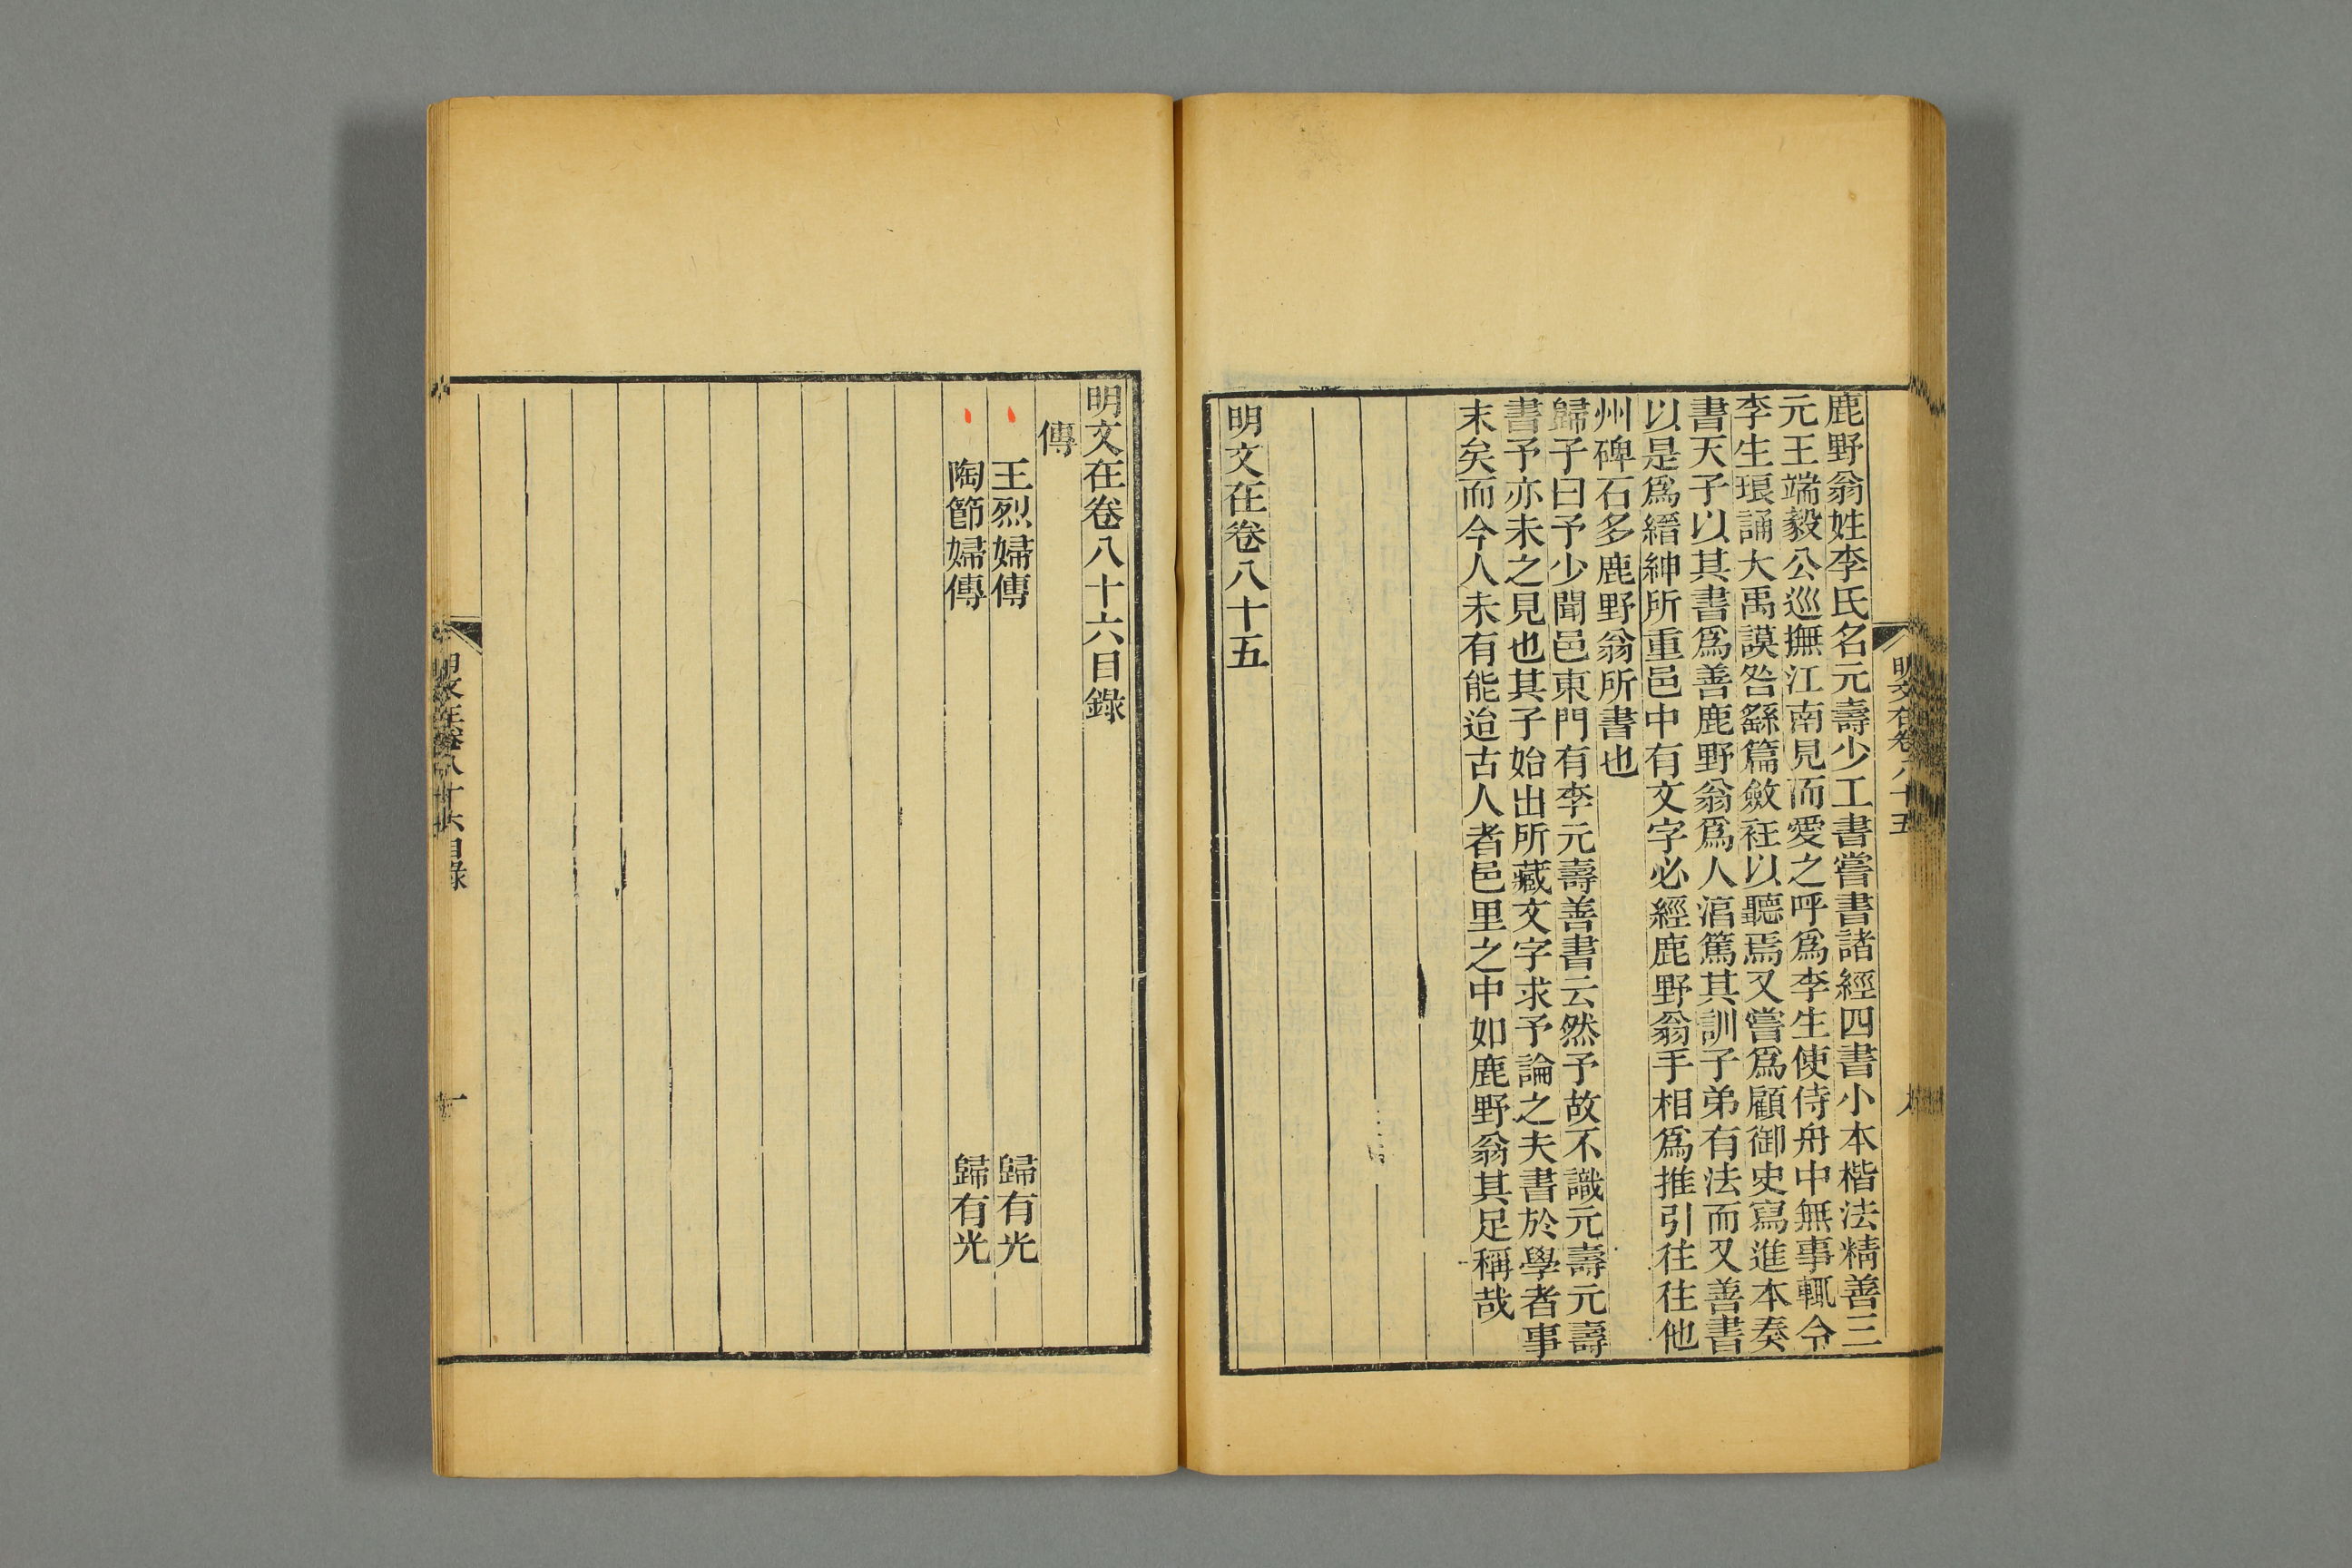 鹿野翁姓李氏名元壽少工書嘗書諸經四書小本楷法精善三
元王端毅公巡撫江南見而愛之呼爲李生使侍舟中無事輒令
李生琅誦大禹謨咎繇篇斂衽以聽焉又嘗爲顧御史寫進本奏
書天子以其書爲善鹿野翁爲人涫篤其訓子弟有法而又善書
以是爲縉紳所重邑中有文字必經鹿野翁手相爲推引往往他
州碑石多鹿野翁所書也
歸子曰予少聞邑東門有李元壽善書云然予故不識元壽元壽
書予亦未之見也其子始出所藏文字求予論之夫書於學者事
末矣而今人未有能迨古人者邑里之中如鹿野翁其足稱哉
明文在卷八十五
明文在卷八十五
明文在卷八十六目錄
傳
王烈婦傳 歸有光
陶節婦傳 歸有光
明文在卷八十六目錄 一